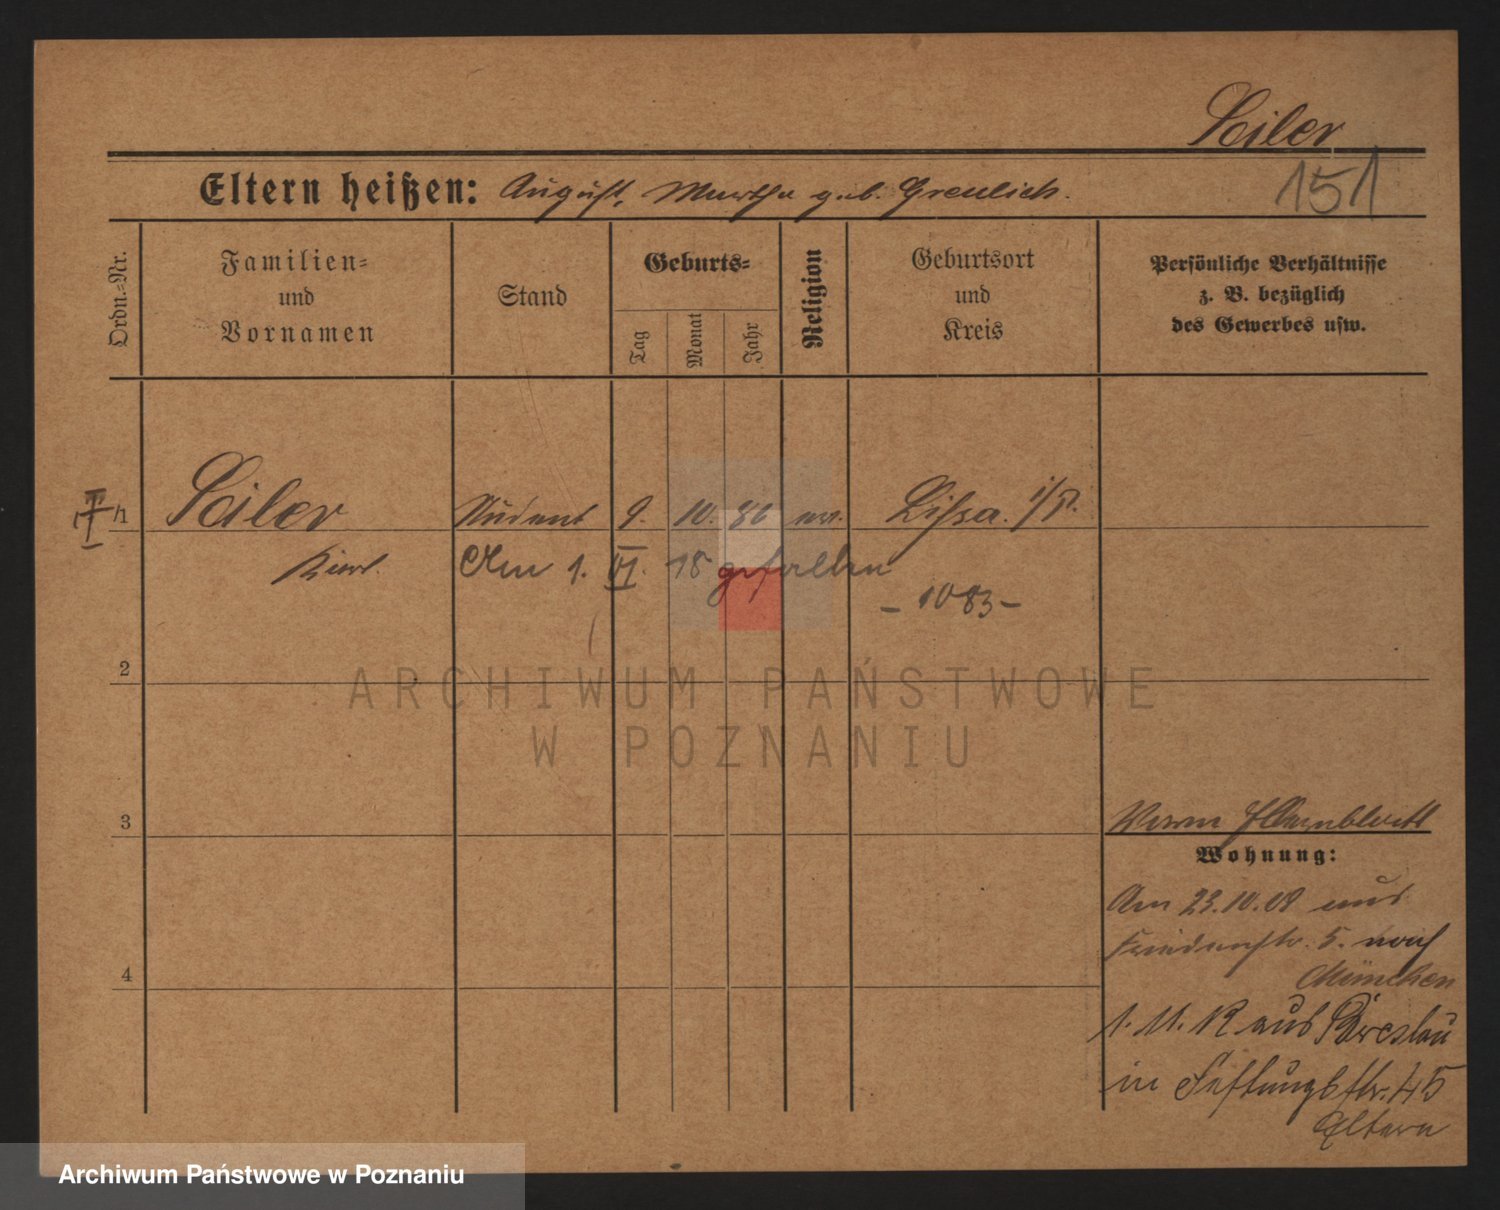 Seiler
Eltern heißen: August, Martha geb. Greulich.
151
Ordn.-Nr.
Familien-
und
Vornamen
Stand
Geburts-
Tag
Monat
Jahr
Religion
Geburtsort
und
Kreis
Persönliche Verhältnisse
z. B. bezüglich
des Gewerbes usw.
1 Seiler Student 9. 10. 86 ev. Lissa i/P.
Kurt. Am 1. VI. 18 gefallen
- 1083 -
2
ARCHIWUM PAŃSTWOWE
W POZNANIU
3
Wohnung:
Am 23.10.08 aus
Friedenstr. 5. nach
München
1. 11. 12 aus Breslau
in Festungsstr. 45
Eltern
4
Archiwum Państwowe w Poznaniu